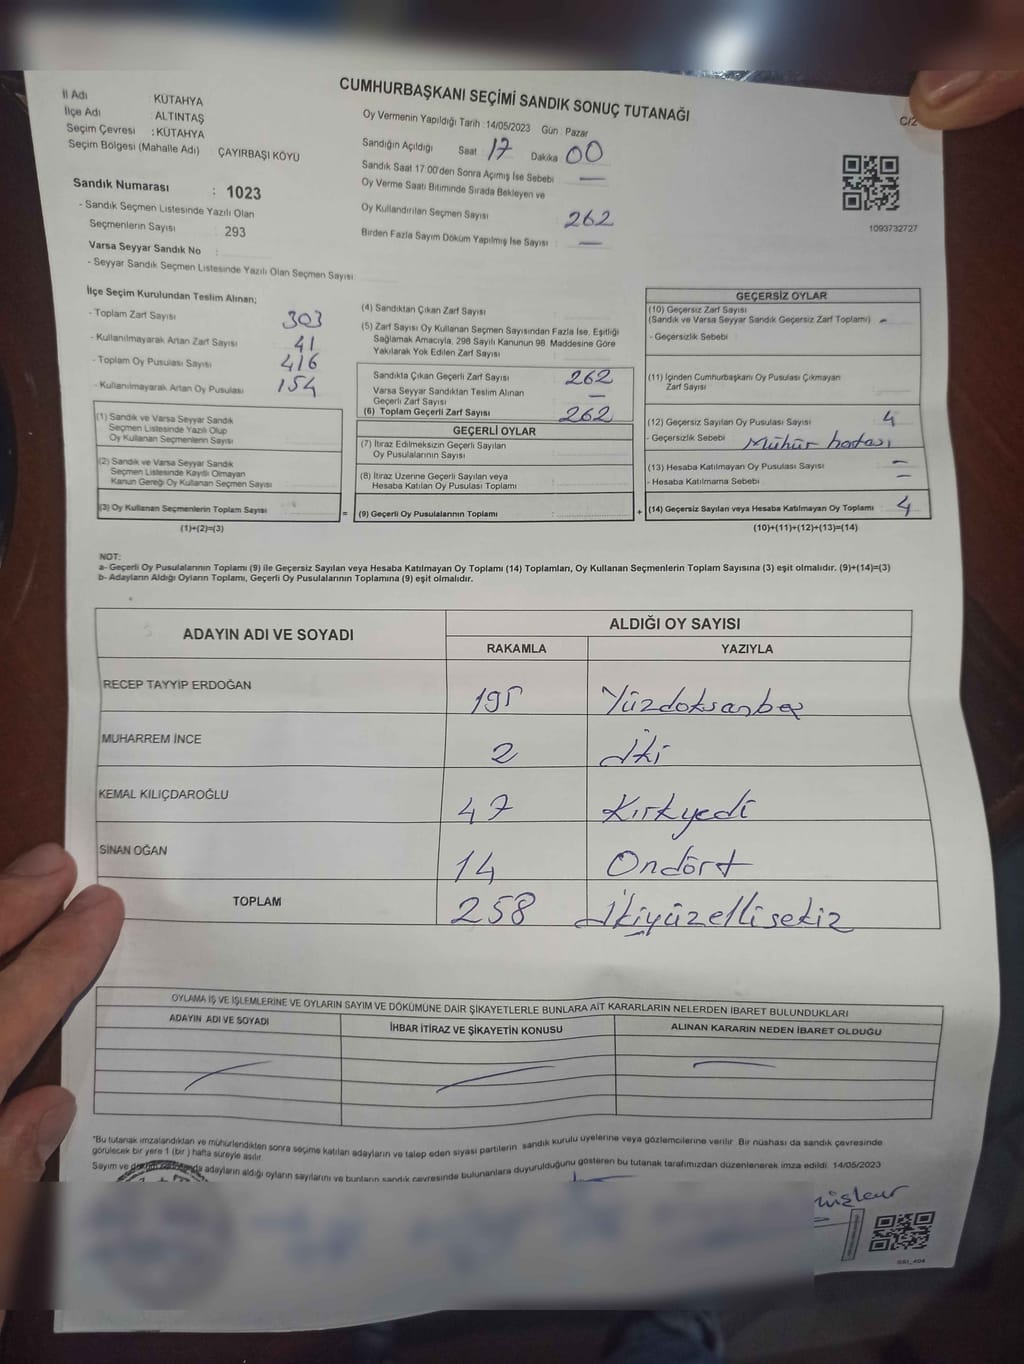 CUMHURBAŞKANI SEÇİMİ SANDIK SONUÇ TUTANAĞI
C/2
İl Adı : KÜTAHYA
İlçe Adı : ALTINTAŞ
Seçim Çevresi : KÜTAHYA
Seçim Bölgesi (Mahalle Adı) ÇAYIRBAŞI KÖYÜ
Sandık Numarası : 1023
- Sandık Seçmen Listesinde Yazılı Olan
Seçmenlerin Sayısı : 293
Varsa Seyyar Sandık No :
- Seyyar Sandık Seçmen Listesinde Yazılı Olan Seçmen Sayısı
Oy Vermenin Yapıldığı Tarih :14/05/2023 Gün : Pazar
Sandığın Açıldığı Saat 17 Dakika 00
Sandık Saat 17:00'den Sonra Açımış İse Sebebi —
Oy Verme Saati Bitiminde Sırada Bekleyen ve
Oy Kullandırılan Seçmen Sayısı 262
Birden Fazla Sayım Döküm Yapılmış İse Sayısı —
1093732727
İlçe Seçim Kurulundan Teslim Alınan;
- Toplam Zarf Sayısı 303
- Kullanılmayarak Artan Zarf Sayısı 41
- Toplam Oy Pusulası Sayısı 416
- Kullanılmayarak Artan Oy Pusulası 154
(1) Sandık ve Varsa Seyyar Sandık
Seçmen Listesinde Yazılı Olup
Oy Kullanan Seçmenlerin Sayısı
(2) Sandık ve Varsa Seyyar Sandık
Seçmen Listesinde Kayıtlı Olmayan
Kanun Gereği Oy Kullanan Seçmen Sayısı
(3) Oy Kullanan Seçmenlerin Toplam Sayısı
(1)+(2)=(3)
(4) Sandıktan Çıkan Zarf Sayısı
(5) Zarf Sayısı Oy Kullanan Seçmen Sayısından Fazla İse, Eşitliği
Sağlamak Amacıyla, 298 Sayılı Kanunun 98. Maddesine Göre
Yakılarak Yok Edilen Zarf Sayısı
Sandıkta Çıkan Geçerli Zarf Sayısı 262
Varsa Seyyar Sandıktan Teslim Alınan
Geçerli Zarf Sayısı —
(6) Toplam Geçerli Zarf Sayısı 262
GEÇERLİ OYLAR
(7) İtiraz Edilmeksizin Geçerli Sayılan
Oy Pusulalarının Sayısı
(8) İtiraz Üzerine Geçerli Sayılan veya
Hesaba Katılan Oy Pusulası Toplamı
= (9) Geçerli Oy Pusulalarının Toplamı
GEÇERSİZ OYLAR
(10) Geçersiz Zarf Sayısı
(Sandık ve Varsa Seyyar Sandık Geçersiz Zarf Toplamı) -
- Geçersizlik Sebebi
(11) İçinden Cumhurbaşkanı Oy Pusulası Çıkmayan
Zarf Sayısı
(12) Geçersiz Sayılan Oy Pusulası Sayısı : 4
- Geçersizlik Sebebi Mühür hatası
(13) Hesaba Katılmayan Oy Pusulası Sayısı —
- Hesaba Katılmama Sebebi : —
+ (14) Geçersiz Sayılan veya Hesaba Katılmayan Oy Toplamı : 4
(10)+(11)+(12)+(13)=(14)
NOT:
a- Geçerli Oy Pusulalarının Toplamı (9) ile Geçersiz Sayılan veya Hesaba Katılmayan Oy Toplamı (14) Toplamları, Oy Kullanan Seçmenlerin Toplam Sayısına (3) eşit olmalıdır. (9)+(14)=(3)
b- Adayların Aldığı Oyların Toplamı, Geçerli Oy Pusulalarının Toplamına (9) eşit olmalıdır.
ADAYIN ADI VE SOYADI ALDIĞI OY SAYISI
RAKAMLA YAZIYLA
RECEP TAYYİP ERDOĞAN 195 Yüzdoksanbeş
MUHARREM İNCE 2 İki
KEMAL KILIÇDAROĞLU 47 Kırkyedi
SİNAN OĞAN 14 Ondört
TOPLAM 258 İkiyüzellisekiz
OYLAMA İŞ VE İŞLEMLERİNE VE OYLARIN SAYIM VE DÖKÜMÜNE DAİR ŞİKAYETLERLE BUNLARA AİT KARARLARIN NELERDEN İBARET BULUNDUKLARI
ADAYIN ADI VE SOYADI İHBAR İTİRAZ VE ŞİKAYETİN KONUSU ALINAN KARARIN NEDEN İBARET OLDUĞU
*Bu tutanak imzalandıktan ve mühürlendikten sonra seçime katılan adayların ve talep eden siyasi partilerin sandık kurulu üyelerine veya gözlemcilerine verilir. Bir nüshası da sandık çevresinde
görülecek bir yere 1 (bir) hafta süreyle asılır.
Sayım ve adayların aldığı oyların sayılarını ve bunların sandık çevresinde bulunanlara duyurulduğunu gösteren bu tutanak tarafımızdan düzenlenerek imza edildi. 14/05/2023